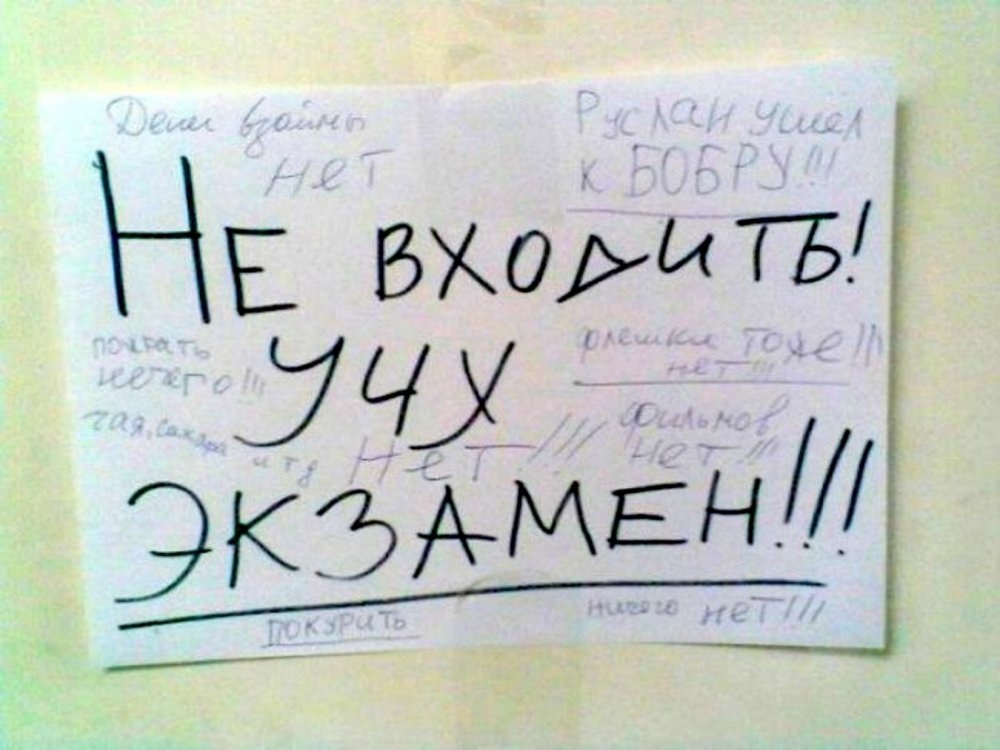 Дени взаймы
нет
Руслан ушел
к БОБРУ!!!
НЕ ВХОДИТЬ!
пожрать
нечего!!!
флешки тоже!!!
нет!!!
УЧУ
чая, сахара и тд Нет!!!
фильмов
нет!!!
ЭКЗАМЕН!!!
ПОКУРИТЬ
ничего нет!!!